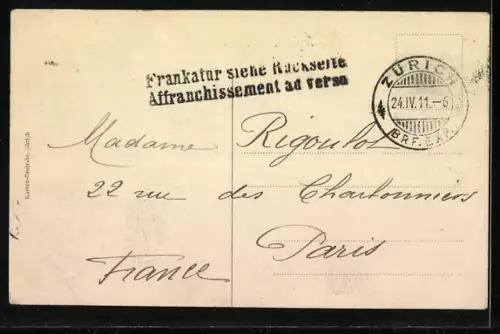 Frankatur siehe Rückseite
Affranchissement au verso
ZÜRICH
24.IV.11.–6
BRF. EXP.
Madame Rigoulot
22 rue des Charbonniers
Paris
France